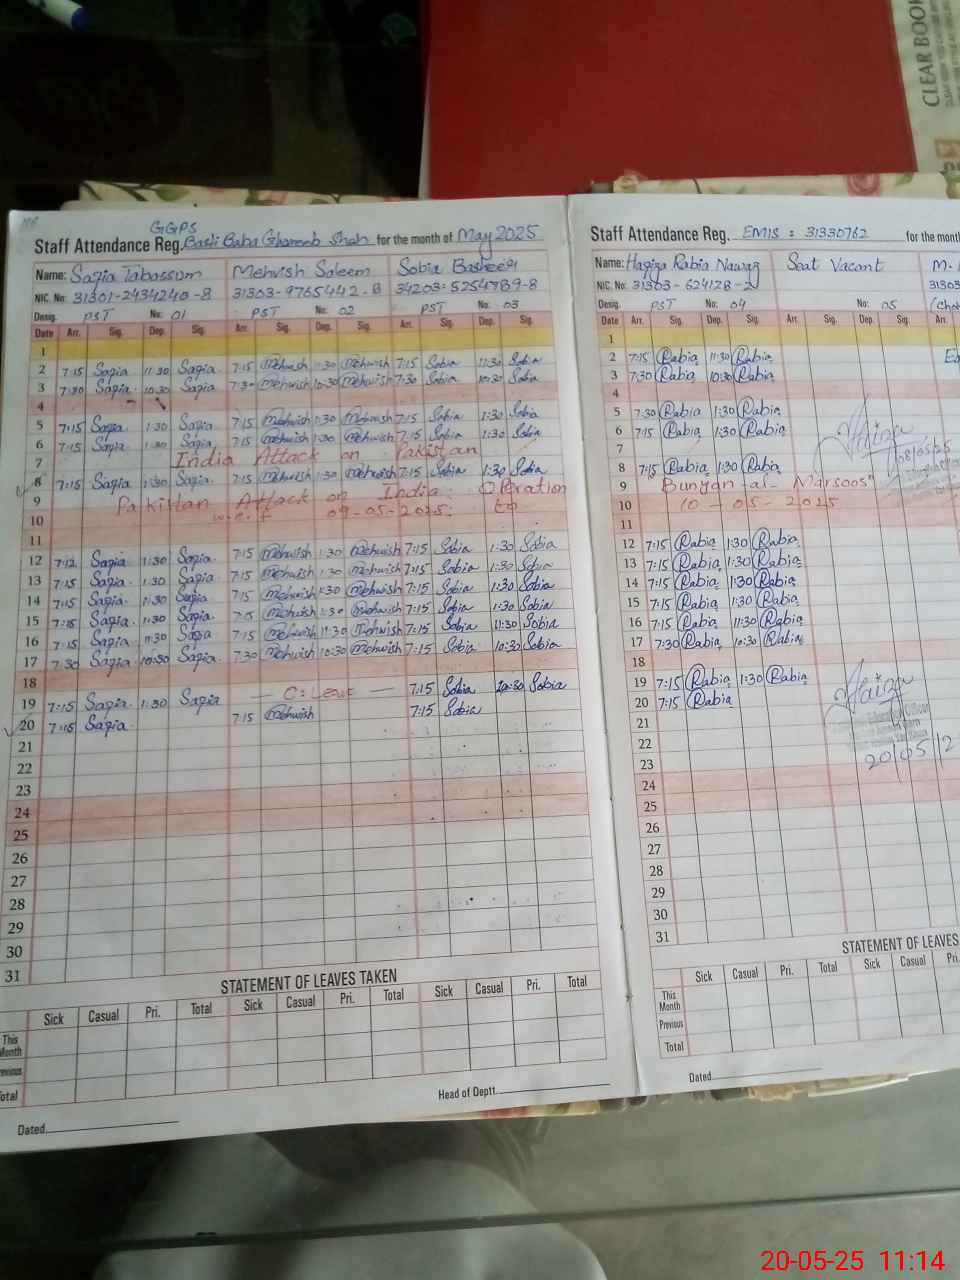 CLEAR BOOK
GGPS
Staff Attendance Reg. Basti Baba Ghareeb Shah for the month of May 2025
Name: Sazia Tabassum Mehvish Saleem Sobia Basheer
NIC. No: 31301-2434240-8 31303-9765442-8 34203-5254789-8
Desig. PST No: 01 PST No: 02 PST No: 03
Date Arr. Sig. Dep. Sig. Arr. Sig. Dep. Sig. Arr. Sig. Dep. Sig.
1
2 7:15 Sazia 11:30 Sazia 7:15 Mehwish 11:30 Mehwish 7:15 Sobia 11:30 Sobia
3 7:30 Sazia 10:30 Sazia 7:30 Mehwish 10:30 Mehwish 7:30 Sobia 10:30 Sobia
4
5 7:15 Sazia 1:30 Sazia 7:15 Mehwish 1:30 Mehwish 7:15 Sobia 1:30 Sobia
6 7:15 Sazia 1:30 Sazia 7:15 Mehwish 1:30 Mehwish 7:15 Sobia 1:30 Sobia
7 India Attack on Pakistan
8 7:15 Sazia 1:30 Sazia 7:15 Mehwish 1:30 Mehwish 7:15 Sobia 1:30 Sobia
9 Pakistan Attack on India: Operation
10 w.e.f 09-05-2025: to
11
12 7:12 Sazia 1:30 Sazia 7:15 Mehwish 1:30 Mehwish 7:15 Sobia 1:30 Sobia
13 7:15 Sazia 1:30 Sazia 7:15 Mehwish 1:30 Mehwish 7:15 Sobia 1:30 Sobia
14 7:15 Sazia 1:30 Sazia 7:15 Mehwish 1:30 Mehwish 7:15 Sobia 1:30 Sobia
15 7:15 Sazia 1:30 Sazia 7:15 Mehwish 1:30 Mehwish 7:15 Sobia 1:30 Sobia
16 7:15 Sazia 11:30 Sazia 7:15 Mehwish 11:30 Mehwish 7:15 Sobia 11:30 Sobia
17 7:30 Sazia 10:30 Sazia 7:30 Mehwish 10:30 Mehwish 7:15 Sobia 10:30 Sobia
18
19 7:15 Sazia 1:30 Sazia — C:Leave — 7:15 Sobia Sobia
20 7:15 Sazia 7:15 Mehwish 7:15 Sobia
21
22
23
24
25
26
27
28
29
30
31
STATEMENT OF LEAVES TAKEN
Sick Casual Pri. Total Sick Casual Pri. Total Sick Casual Pri. Total
This Month
Previous
Total
Head of Deptt.
Dated
Staff Attendance Reg. EMIS: 31330762 for the month
Name: Hafiza Rabia Nawaz Seat Vacant M.
NIC. No: 31303-624128-2 3130
Desig. PST No: 04 No: 05
Date Arr. Sig. Dep. Sig. Arr. Sig. Dep. Sig. Arr.
1
2 7:15 Rabia 11:30 Rabia
3 7:30 Rabia 10:30 Rabia
4
5 7:30 Rabia 1:30 Rabia
6 7:15 Rabia 1:30 Rabia
7
8 7:15 Rabia 1:30 Rabia
9 Bunyan-al-Marsoos"
10 10-05-2025
11
12 7:15 Rabia 1:30 Rabia
13 7:15 Rabia 1:30 Rabia
14 7:15 Rabia 1:30 Rabia
15 7:15 Rabia 1:30 Rabia
16 7:15 Rabia 11:30 Rabia
17 7:30 Rabia 10:30 Rabia
18
19 7:15 Rabia 1:30 Rabia
20 7:15 Rabia
21
22
23 20/05/2
24
25
26
27
28
29
30
31
STATEMENT OF LEAVES
Sick Casual Pri. Total Sick Casual Pri.
This Month
Previous
Total
Dated
20-05-25 11:14